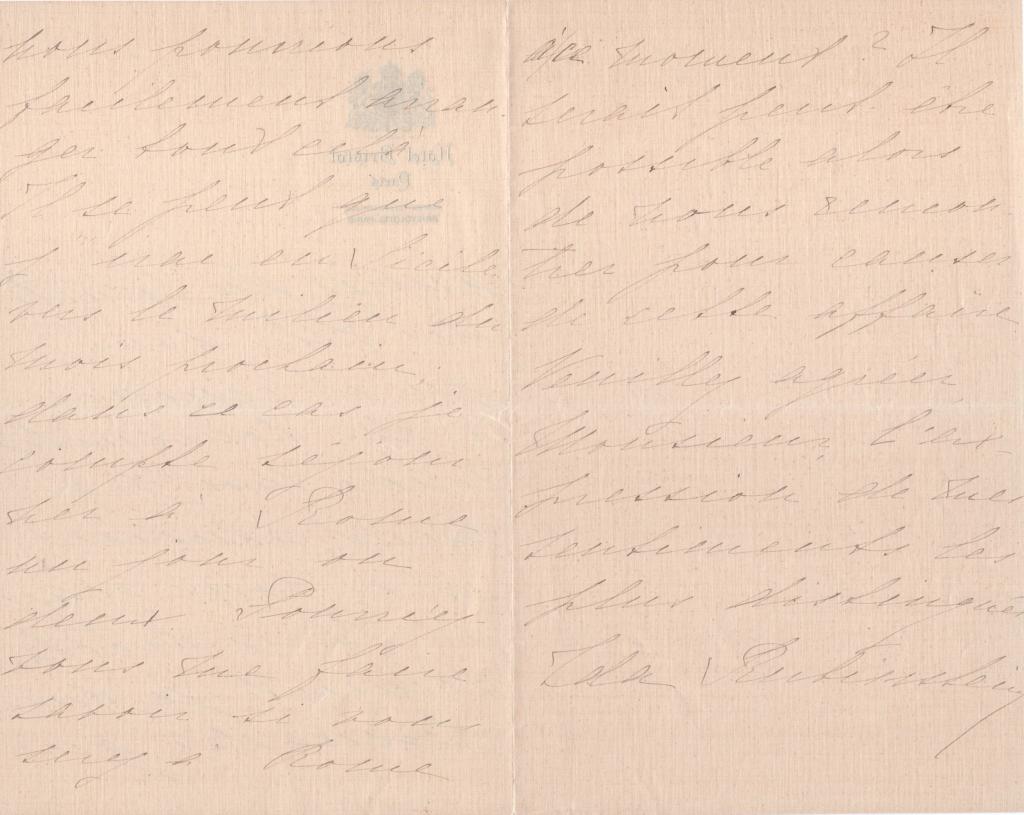 nous pourrions
facilement arran-
ger tout cela.
Il se peut que
j'irai en Sicile
vers le milieu du
mois prochain,
dans ce cas je
compte séjour-
ner à Rome
un jour ou
deux Pourriez-
vous me faire
savoir si vous
serez à Rome
à ce moment? Il
serait peut-être
possible alors
de nous rencon-
trer pour causer
de cette affaire
Veuillez agréer
Monsieur, l'ex-
pression de mes
sentiments les
plus distingués
Ida Rubinstein
Hôtel Bristol
Paris